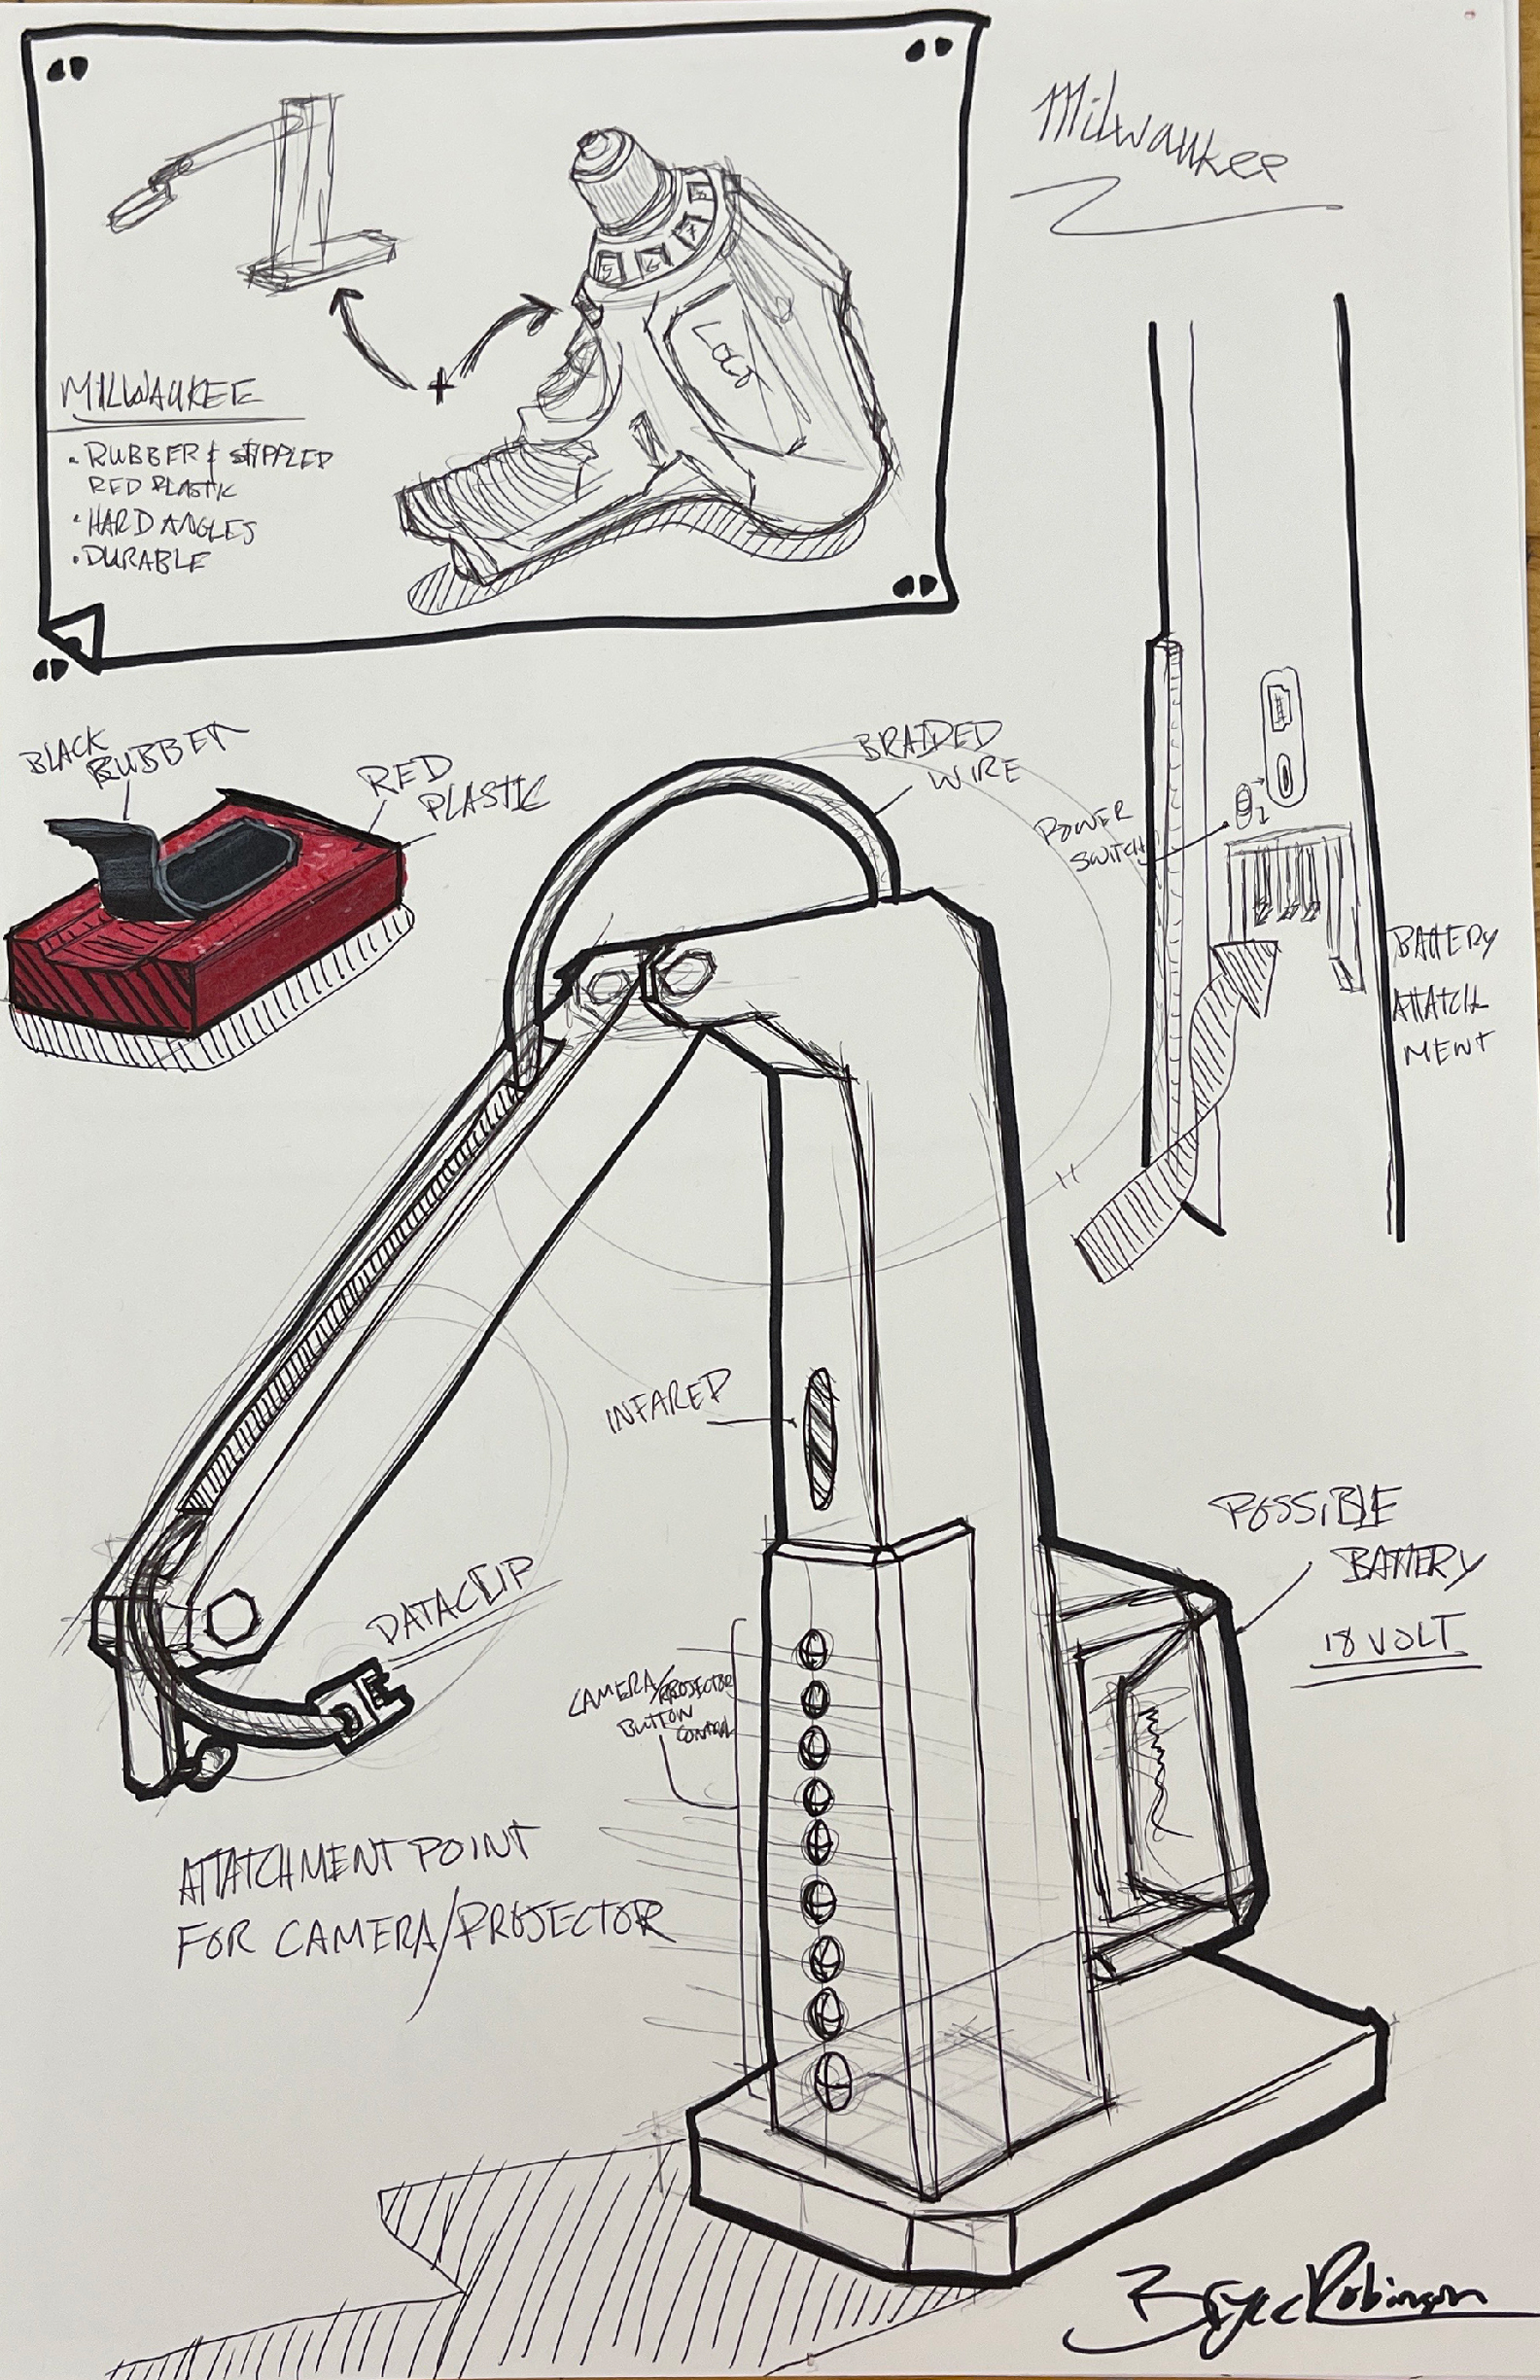 Milwaukee
5 6 7 8
LOGO
MILWAUKEE
• RUBBER & STIPPLED
RED PLASTIC
• HARD ANGLES
• DURABLE
BLACK
RUBBER
RED
PLASTIC
BRAIDED
WIRE
POWER
SWITCH
BATTERY
ATTATCH
MENT
INFARED
POSSIBLE
BATTERY
18 VOLT
DATACLIP
CAMERA/PROJECTOR
BUTTON
CONTROL
ATTATCHMENT POINT
FOR CAMERA/PROJECTOR
Bryce Robinson